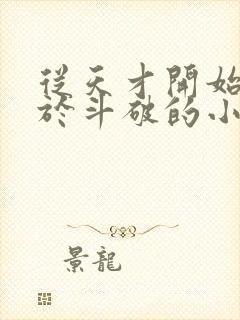 從天才開始
於斗破的小
景龍